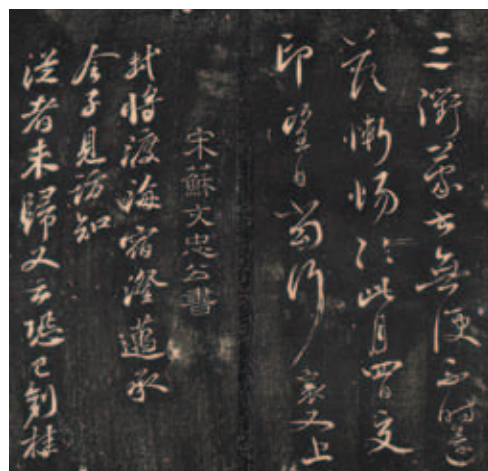 三衢蒙書無便不時還
答慚惕於此月四日交
印望日當行 襄又上
宋蘇文忠公書
軾將渡海宿澄邁承
令子見訪知
從者未歸又云恐已到桂